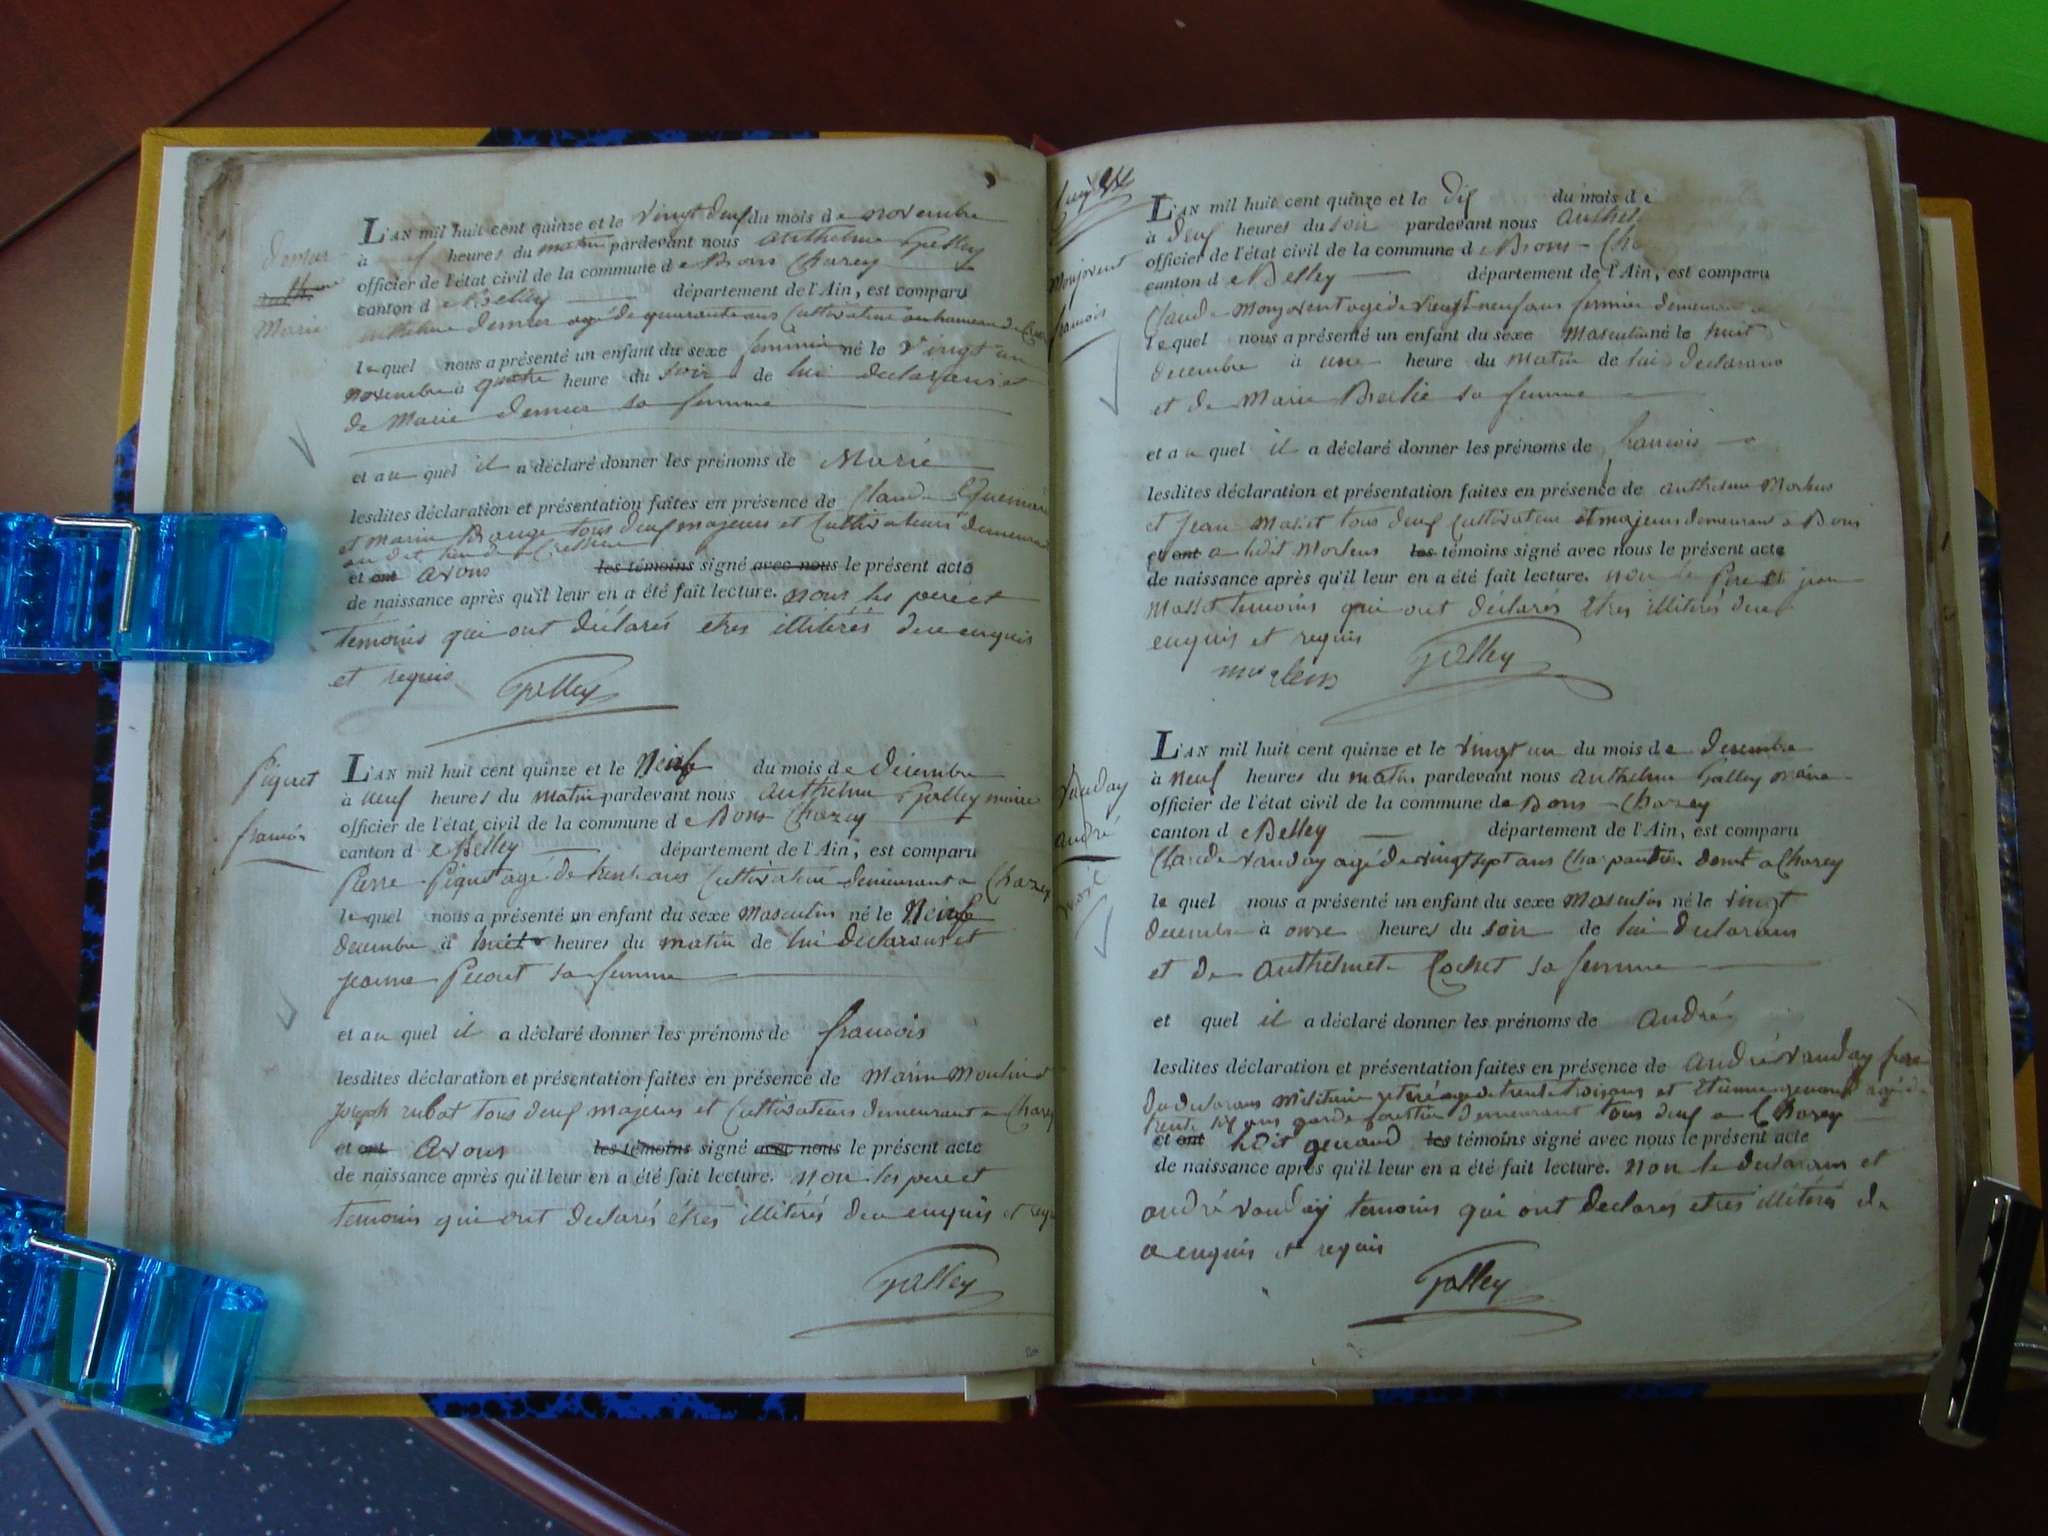 L'AN mil huit cent quinze et le vingt deux du mois de novembre
à heures du matin pardevant nous anthelme Galley
officier de l'état civil de la commune de Bons Chazey
canton de Belley département de l'Ain, est comparu
anthelme demeur agé de quarante ans Cultivateur au hameau de
lequel nous a présenté un enfant du sexe feminin né le vingt un
novembre à quatre heure du soir de lui declarans et
de Marie demeur sa femme
et au quel il a déclaré donner les prénoms de Marie
lesdites déclaration et présentation faites en présence de Claude
et marin tous deux majeurs et Cultivateurs demeurant
au dit lieu de
et ont avons les témoins signé avec nous le présent acte
de naissance après qu'il leur en a été fait lecture. non les pere et
temoins qui ont déclarés etres illitérés de ce enquis
et requis
Galley
Piquet
francois
L'AN mil huit cent quinze et le Neuf du mois de decembre
à neuf heures du matin pardevant nous anthelme Galley maire
officier de l'état civil de la commune de Bons Chazey
canton de Belley département de l'Ain, est comparu
Pierre Piquet agé de trente ans Cultivateur demeurant a Chazey
lequel nous a présenté un enfant du sexe Masculin né le Neuf
decembre à huit heures du matin de lui declarans et
jeanne Picout sa femme
et au quel il a déclaré donner les prénoms de francois
lesdites déclaration et présentation faites en présence de Marin Moulin et
joseph rubat tous deux majeurs et Cultivateurs demeurant a Chazey
et ont avons les témoins signé avec nous le présent acte
de naissance après qu'il leur en a été fait lecture. non les pere et
temoins qui ont declarés étres illitérés de ce enquis et requis
Galley
Monjovent
francois
L'AN mil huit cent quinze et le dix du mois de
à deux heures du soir pardevant nous anthel
officier de l'état civil de la commune de Bons - Cha
canton de Belley département de l'Ain, est comparu
Claude Monjovent agé de vingt neuf ans fermier demeurant a
lequel nous a présenté un enfant du sexe Masculin né le huit
decembre à une heure du matin de lui declarans
et de Marie sa femme
et au quel il a déclaré donner les prénoms de francois
lesdites déclaration et présentation faites en présence de anthelme Mortens
et jean Masset tous deux Cultivateur et majeurs demeurant a Bons
et ont a ledit Mortens les témoins signé avec nous le présent acte
de naissance après qu'il leur en a été fait lecture. non le Pere et jean
Masset temoins qui ont déclarés etres illitérés de ce
enquis et requis
Galley
Vauday
andré
L'AN mil huit cent quinze et le vingt un du mois de decembre
à neuf heures du matin pardevant nous anthelme Galley maire
officier de l'état civil de la commune de Bons - Chazey
canton de Belley département de l'Ain, est comparu
Claude vauday agé de vingt sept ans Charpantier demt a Chazey
lequel nous a présenté un enfant du sexe Masculin né le vingt
decembre à onze heures du soir de lui declarans
et de anthelmete Cochet sa femme
et quel il a déclaré donner les prénoms de andré
lesdites déclaration et présentation faites en présence de andré vauday frere
du declarans Militaire retiré agé de trente trois ans et Etienne genaud agé de
trente six ans garde forestier demeurant tous deux a Chazey
et ont ledit genaud les témoins signé avec nous le présent acte
de naissance après qu'il leur en a été fait lecture. non le declarans et
andré vauday temoins qui ont declarés etres illitérés de
ce enquis et requis
Galley